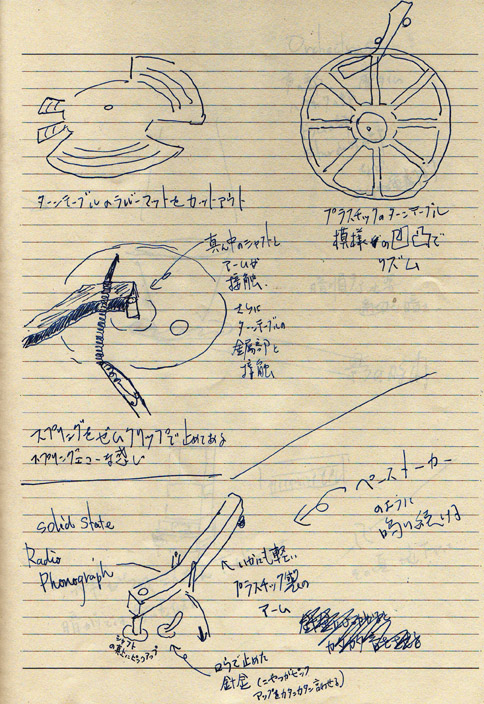 ターンテーブルのラバーマットをカットアウト
プラスチックのターンテーブル
模様の凹凸で
リズム
真ん中のシャフトと
アームが
接触、
さらに
ターンテーブルの
金属部と
接触
スプリングをゼムクリップで止めてある
スプリングエコーな感じ
solid state
Radio
Phonograph
ペースメーカー
のように
鳴り続ける
いかにも軽い
プラスチック製の
アーム
シャフト
の真上にピックアップ
止めた
針金 (こやつがピック
アップをカタンカタン言わせる)